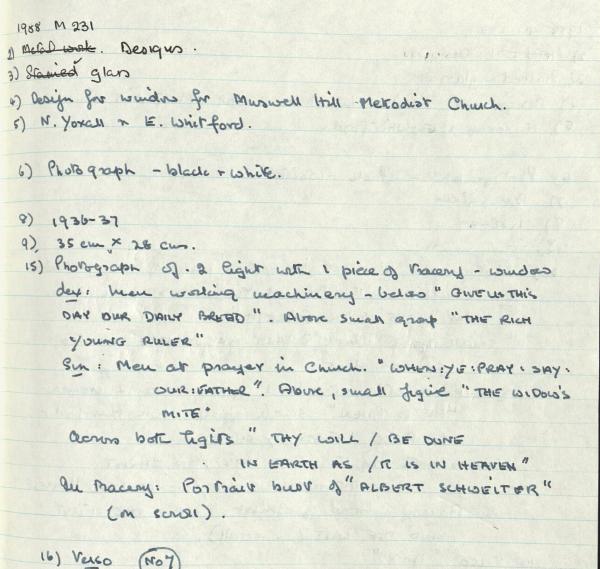 1988 M 231
2) Metal work. Designs.
3) Stained glass
4) Design for window for Muswell Hill Methodist Church.
5) N. Yoxall & E. Whitford.
6) Photograph - black & white.
8) 1936-37
9) 35 cm x 28 cms.
15) Photograph of 2 light with 1 piece of tracery - window
dex: Men working machinery - below "GIVE US THIS
DAY OUR DAILY BREED". Above small group "THE RICH
YOUNG RULER"
Sin: Men at prayer in Church. "WHEN:YE:PRAY:SAY:
OUR:FATHER". Above, small figure "THE WIDOW'S
MITE"
Across both lights "THY WILL / BE DONE
IN EARTH AS / IT IS IN HEAVEN"
In tracery: Portrait bust of "ALBERT SCHWEITER"
(on scroll).
16) Verso No 7